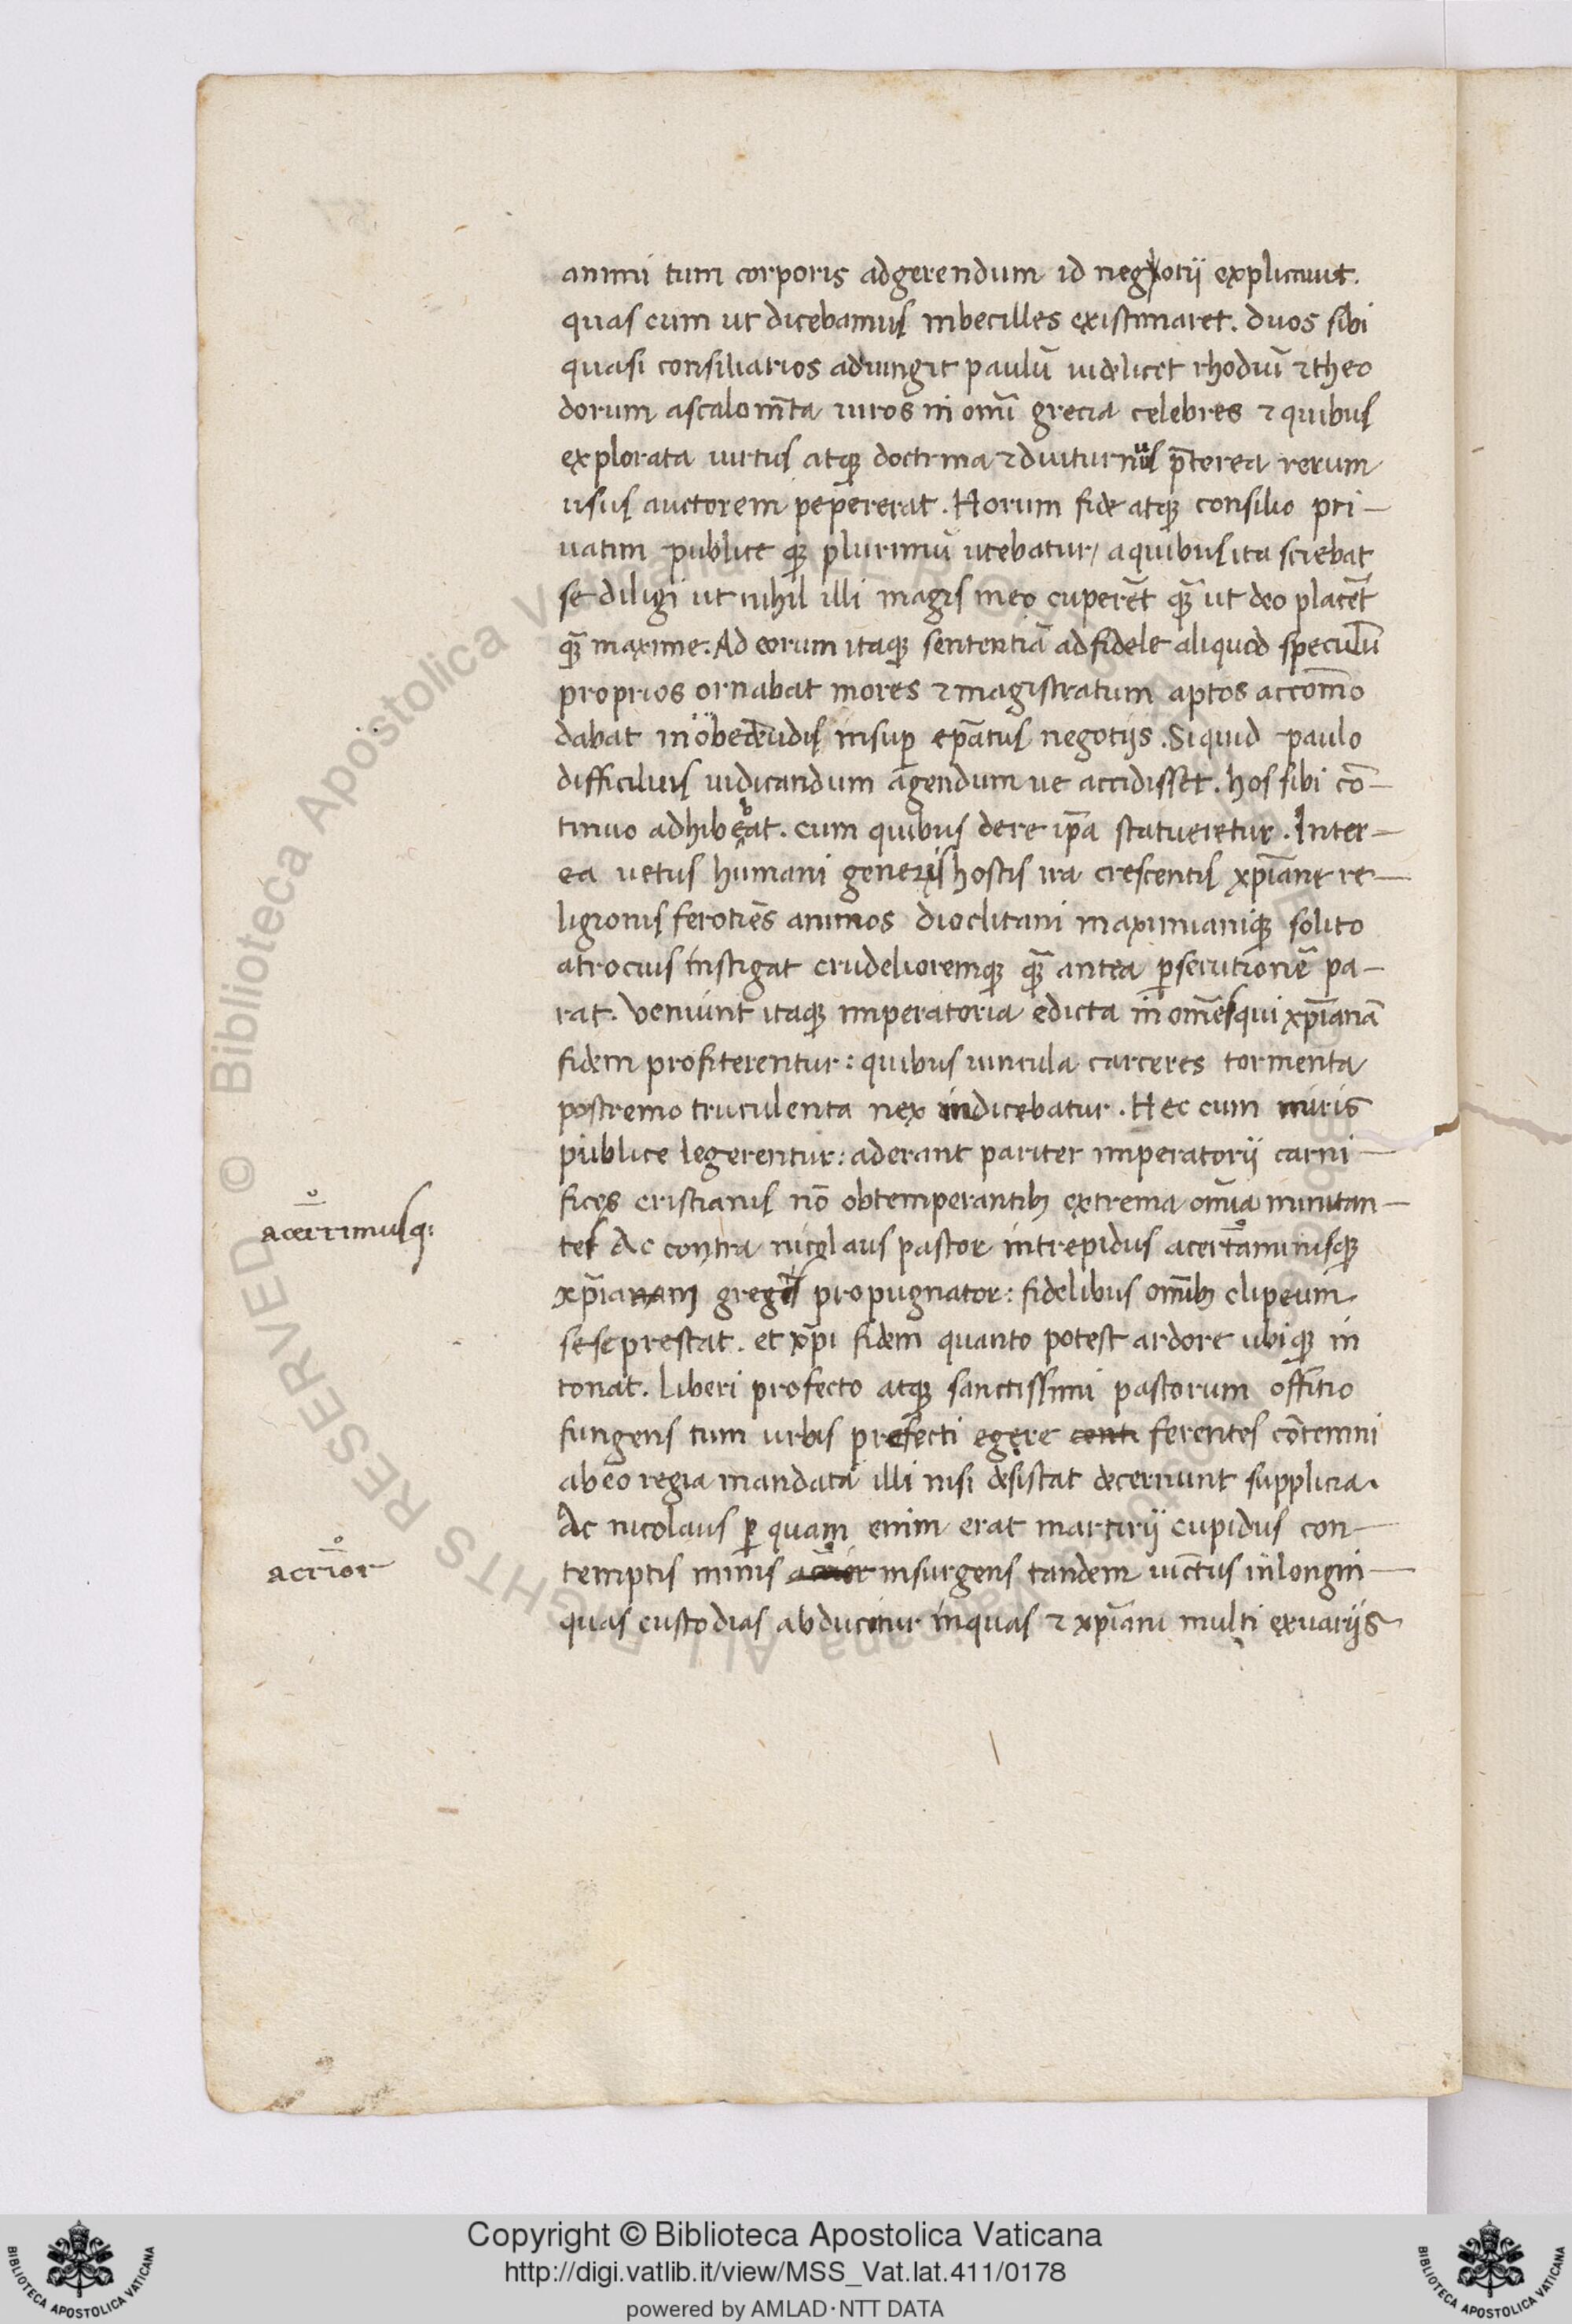 animi tum corporis adgerendum id negotii explicauit.
quas cum ut dicebamus inbecilles existimaret. duos sibi
quasi consiliarios adiungit paulū uidelicet rhodiū & theo
dorum ascalonīta uiros in omī grecia celebres & quibus
explorata uirtus atq; doctrina & diuturnus p̄terea rerum
usus auctorem pepererat. Horum fide atq; consilio pri-
uatim publice q; plurimū utebatur, a quibus ita sciebat
se diligi ut nihil illi magis cuperēt q̄ ut deo placēt
q̄ maxime. Ad eorum itaq; sententiā ad fidele aliquod speculū
proprios ornabat mores & magistratum aptos accōmo
dabat in obeundis insup ep̄atus negotijs. Siquid paulo
difficilius iudicandum agendum ue accidisset. hos sibi cō-
tinuo adhibebat. cum quibus de re ip̄a statueretur. Inter-
ea uetus humani generis hostis ira crescentis xp̄iane re-
ligionis ferotiēs animos dioclitani maximianiq; solito
atrocius instigat crudelioremq; q̄ antea p̱secutionē pa-
rat. Veniunt itaq; imperatoria edicta in om̄es qui xp̄ianā
fidem profiterentur: quibus uincula carceres tormenta
postremo truculenta nex indicebatur. Hec cum miris
publice legerentur: aderant pariter imperatorii carni-
fices cristianis nō obtemperantib; extrema om̄ia minitan-
acerrimusq;
tes Ac contra nicolaus pastor intrepidus
xp̄iani gregis propugnator: fidelibus om̄ib; clipeum
sese prestat. et xp̄i fidem quanto potest ardore ubiq; in
tonat. Liberi profecto atq; sanctissimi pastorum offitio
fungens tum urbis prefecti egere ferentes cōtemni
ab eo regia mandata illi nisi desistat decernunt supplicia.
Ac nicolaus p̱ quam enim erat martirij cupidus con-
acrior
temptis minis acrior insurgens tandem uīctus in longin-
quas custodias abducitur in quas & xp̄iani multi ex uarijs
Copyright © Biblioteca Apostolica Vaticana
http://digi.vatlib.it/view/MSS_Vat.lat.411/0178
powered by AMLAD·NTT DATA